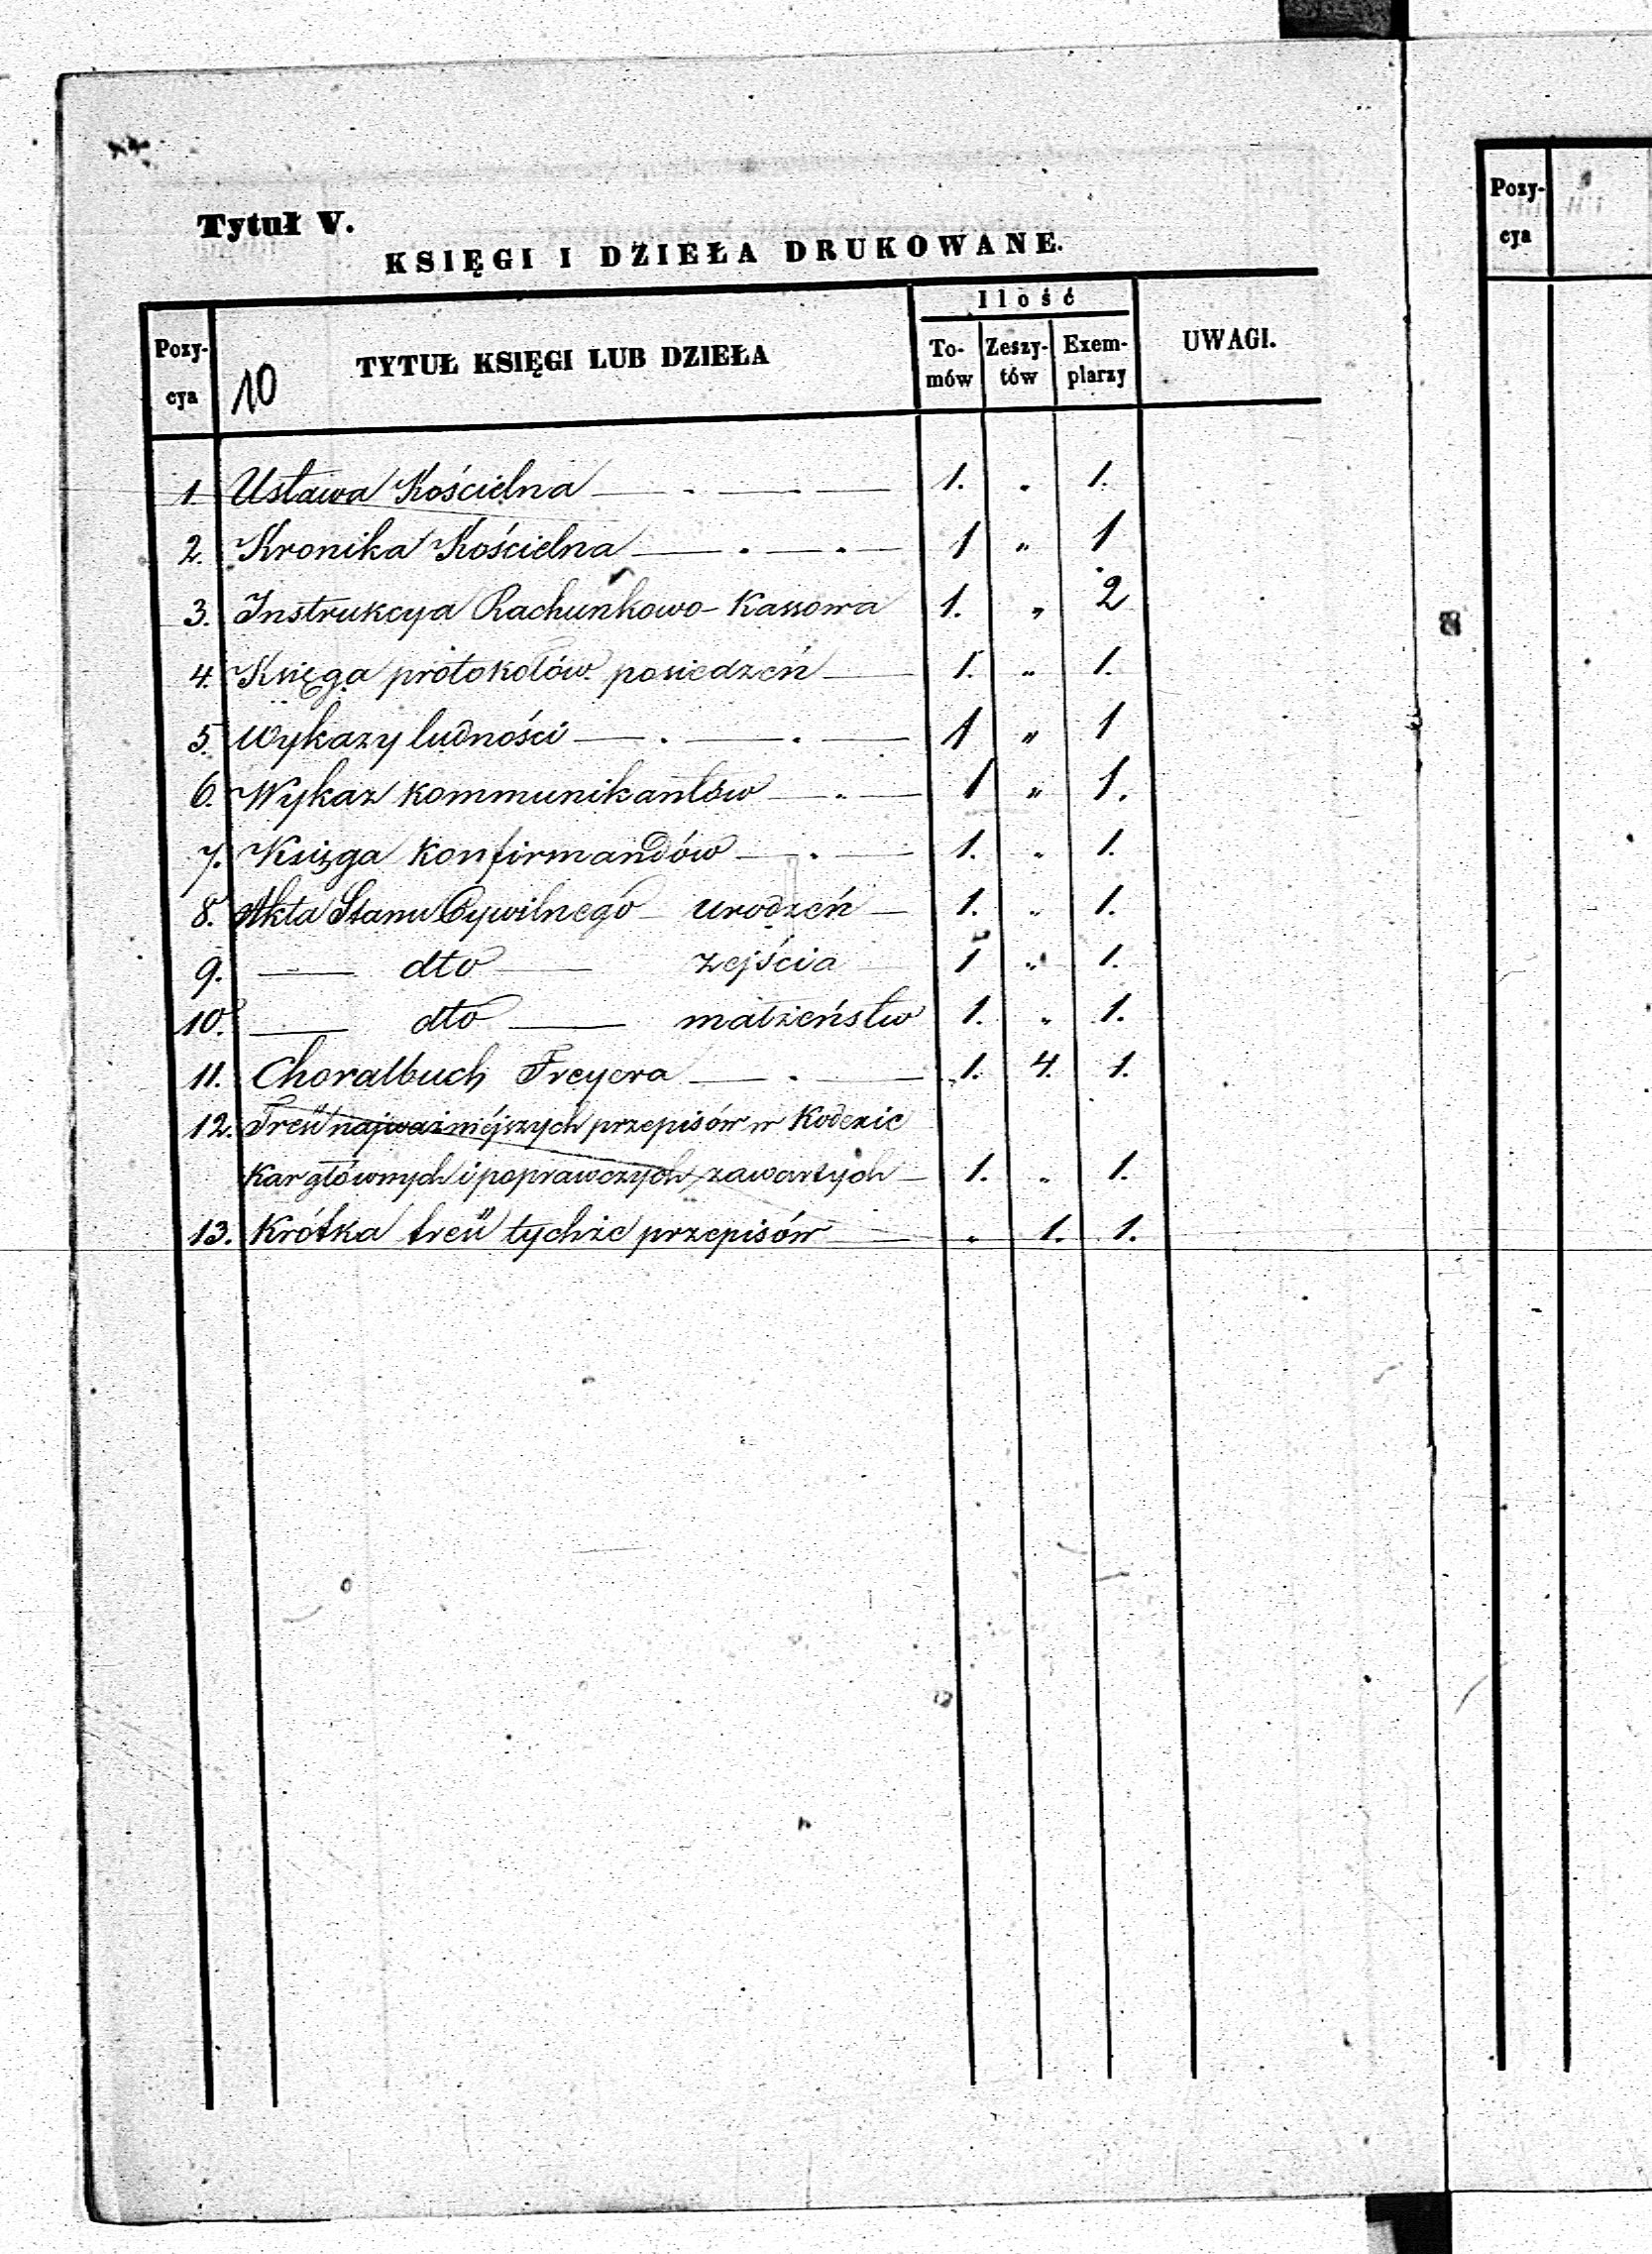 Tytuł V.
KSIĘGI I DZIEŁA DRUKOWANE.
Pozy-cya 10 TYTUŁ KSIĘGI LUB DZIEŁA Ilość To-mów Zeszy-tów Exem-plarzy UWAGI.
1. Ustawa Kościelna — . — . — 1. „ 1.
2. Kronika Kościelna — . — . — 1 „ 1
3. Instrukcya Rachunkowo-Kassowa 1. „ 2
4. Księga protokołów posiedzeń — 1. „ 1.
5. Wykazy ludności — . — . — 1 „ 1
6. Wykaz kommunikantów — . — 1 „ 1.
7. Księga konfirmandów — . — 1. „ 1.
8. Akta Stanu Cywilnego urodzeń — 1. „ 1.
9. — dto — zejścia 1 „ 1.
10. — dto — małżeństw 1. „ 1.
11. Choralbuch Freyera — . — 1. 4. 1.
12. Treść najważniejszych przepisów w Kodexie
Kar głównych i poprawczych zawartych — 1. „ 1.
13. Krótka treść tychże przepisów — „ 1. 1.
Pozy-
cya